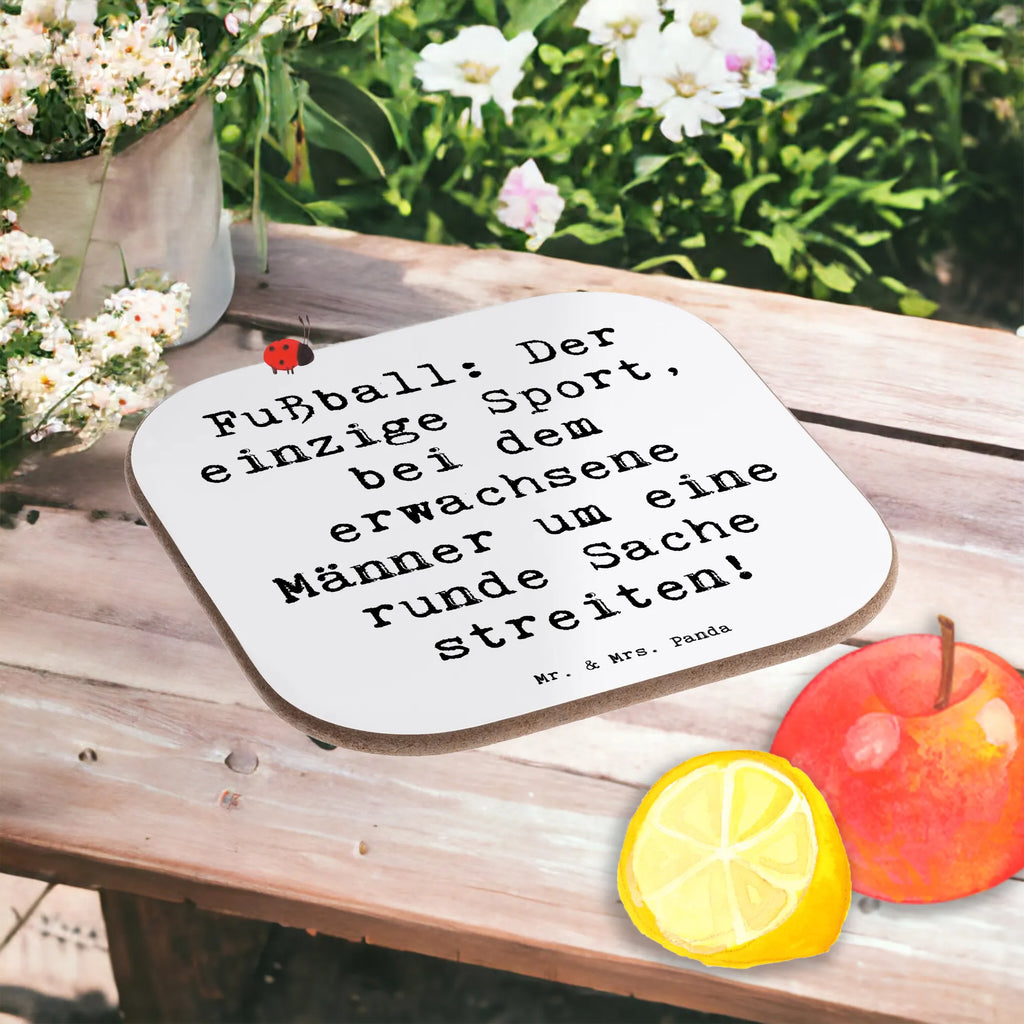 Fußball: Der
einzige Sport,
bei dem
erwachsene
Männer um eine
runde Sache
streiten!
Mr. & Mrs. Panda